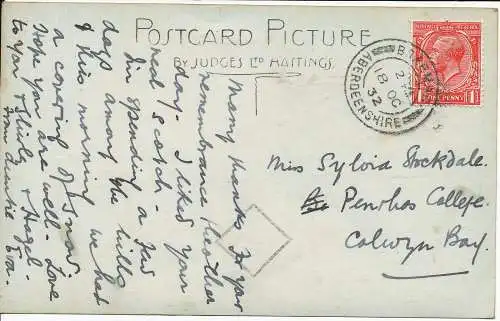 POSTCARD PICTURE
BY JUDGES LTD HASTINGS.
Many thanks for your
remembrance Heather
day. I liked your
real scotch. a few
I'm spending
days among the hills
& this morning we had
a covering of snow
Hope you are well. Love
to you & Sheila & Hazel
from Auntie Eva.
BRAEMAR
2
18 OC
32
ABERDEENSHIRE
POSTAGE REVENUE
1 ONE PENNY 1
Miss Sylvia Stockdale.
Penrhos College.
Colwyn Bay.